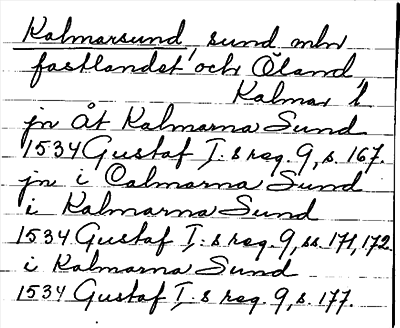 Kalmarsund, sund mln
fastlandet och Öland
Kalmar l
jn åt Kalmarna Sund
1534 Gustaf I:s reg. 9, s. 167.
jn i Calmarna Sund
i Kalmarna Sund
1534 Gustaf I:s reg. 9, ss. 171, 172
i Kalmarna Sund
1534 Gustaf I:s reg. 9, s. 177.